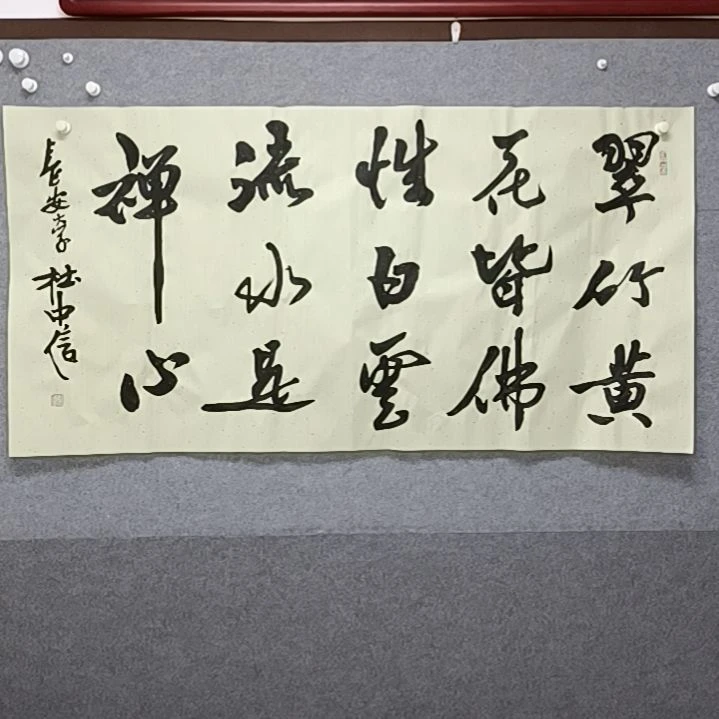 翠竹黄
花皆佛
性白雲
流水是
禅心
长安大学杜中信